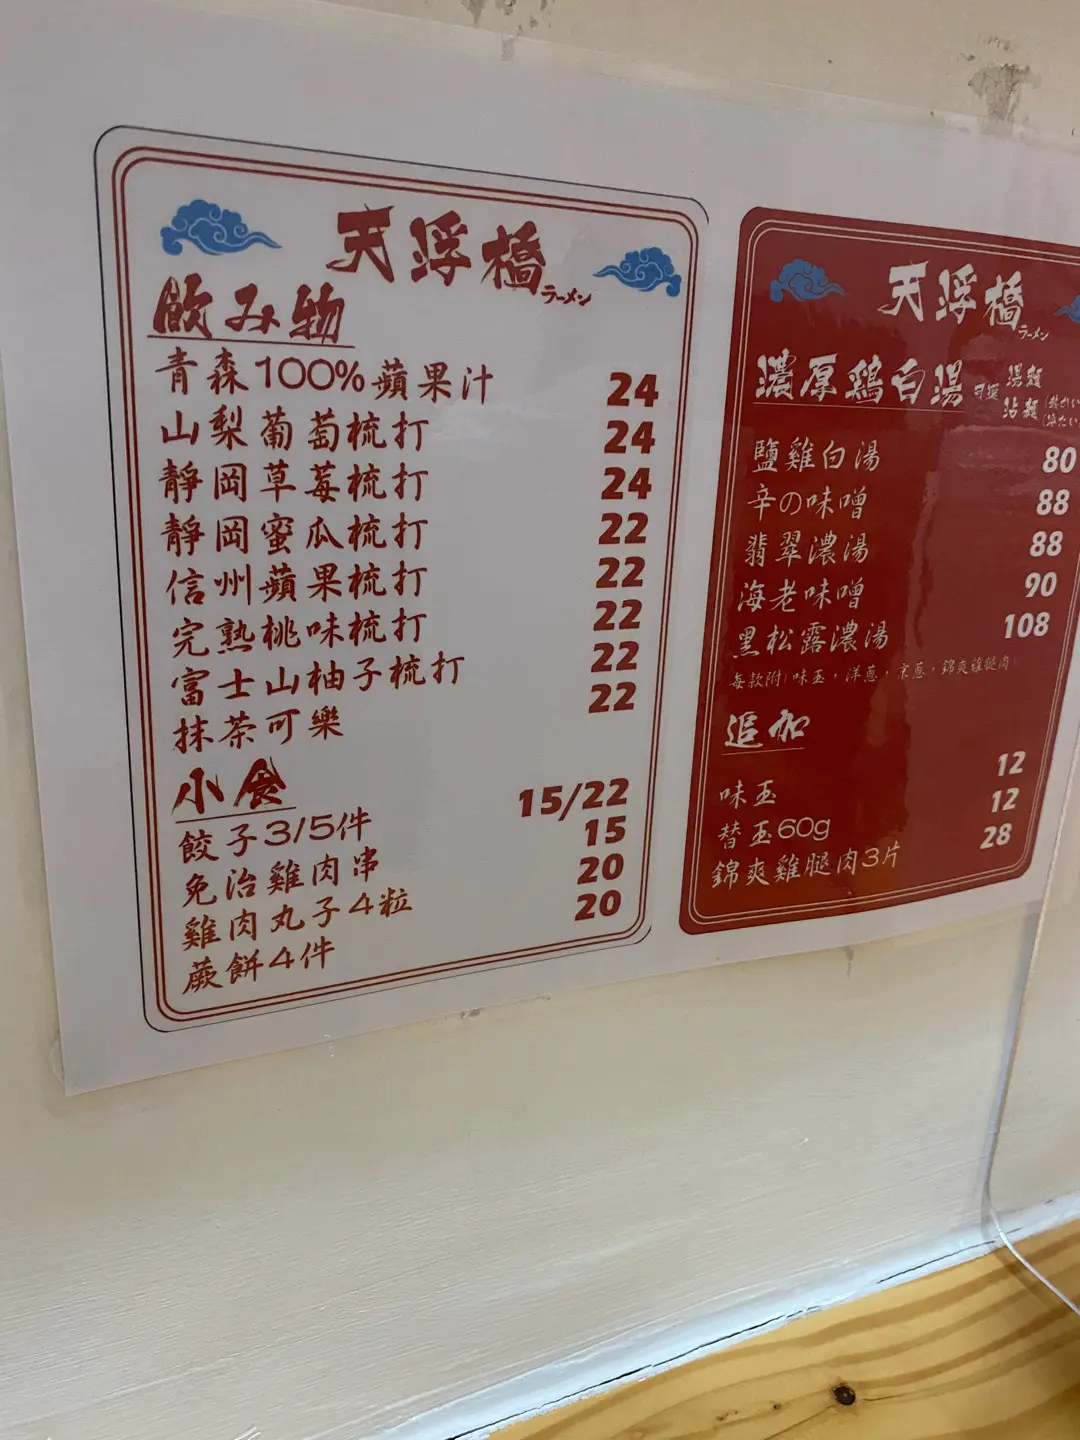 天浮橋
ラーメン
飲み物
青森100%蘋果汁 24
山梨葡萄梳打 24
靜岡草莓梳打 24
靜岡蜜瓜梳打 22
信州蘋果梳打 22
完熟桃味梳打 22
富士山柚子梳打 22
抹茶可樂 22
小食
餃子3/5件 15/22
免治雞肉串 15
雞肉丸子4粒 20
蕨餅4件 20
天浮橋
ラーメン
濃厚鶏白湯 可選 湯麵
沾麵
鹽雞白湯 80
辛の味噌 88
翡翠濃湯 88
海老味噌 90
黑松露濃湯 108
每款附:味玉,洋蔥,京蔥,錦爽雞腿肉
追加
味玉 12
替玉60g 12
錦爽雞腿肉3片 28